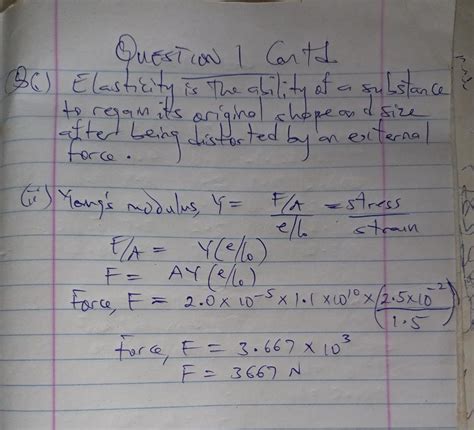 QUESTION 1 Contd
(i) Elasticity is the ability of a substance
to regain its original shape and size
after being distorted by an external
force.
(ii) Young's modulus, Y = F/A / e/l₀ = stress / strain
F/A = Y(e/l₀)
F = AY(e/l₀)
Force, F = 2.0 × 10⁻⁵ × 1.1 × 10¹⁰ × (2.5×10⁻² / 1.5)
Force, F = 3.667 × 10³
F = 3667 N